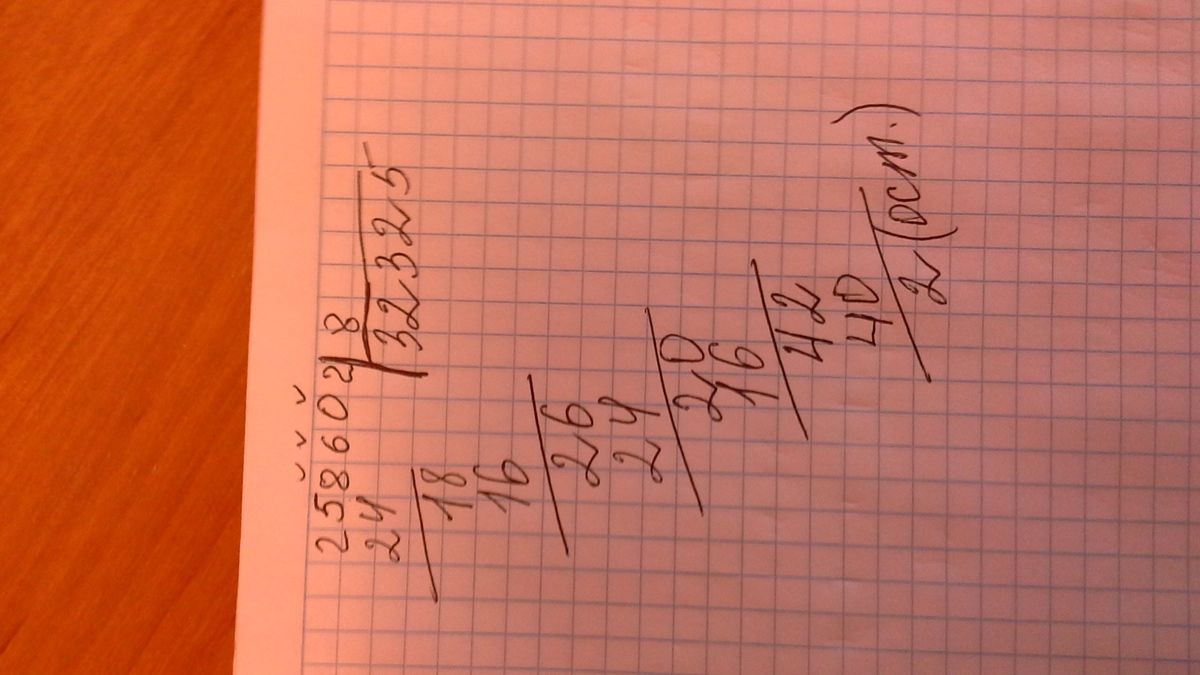 258602 8
24 32325
18
16
26
24
20
16
42
40
2 (ост.)